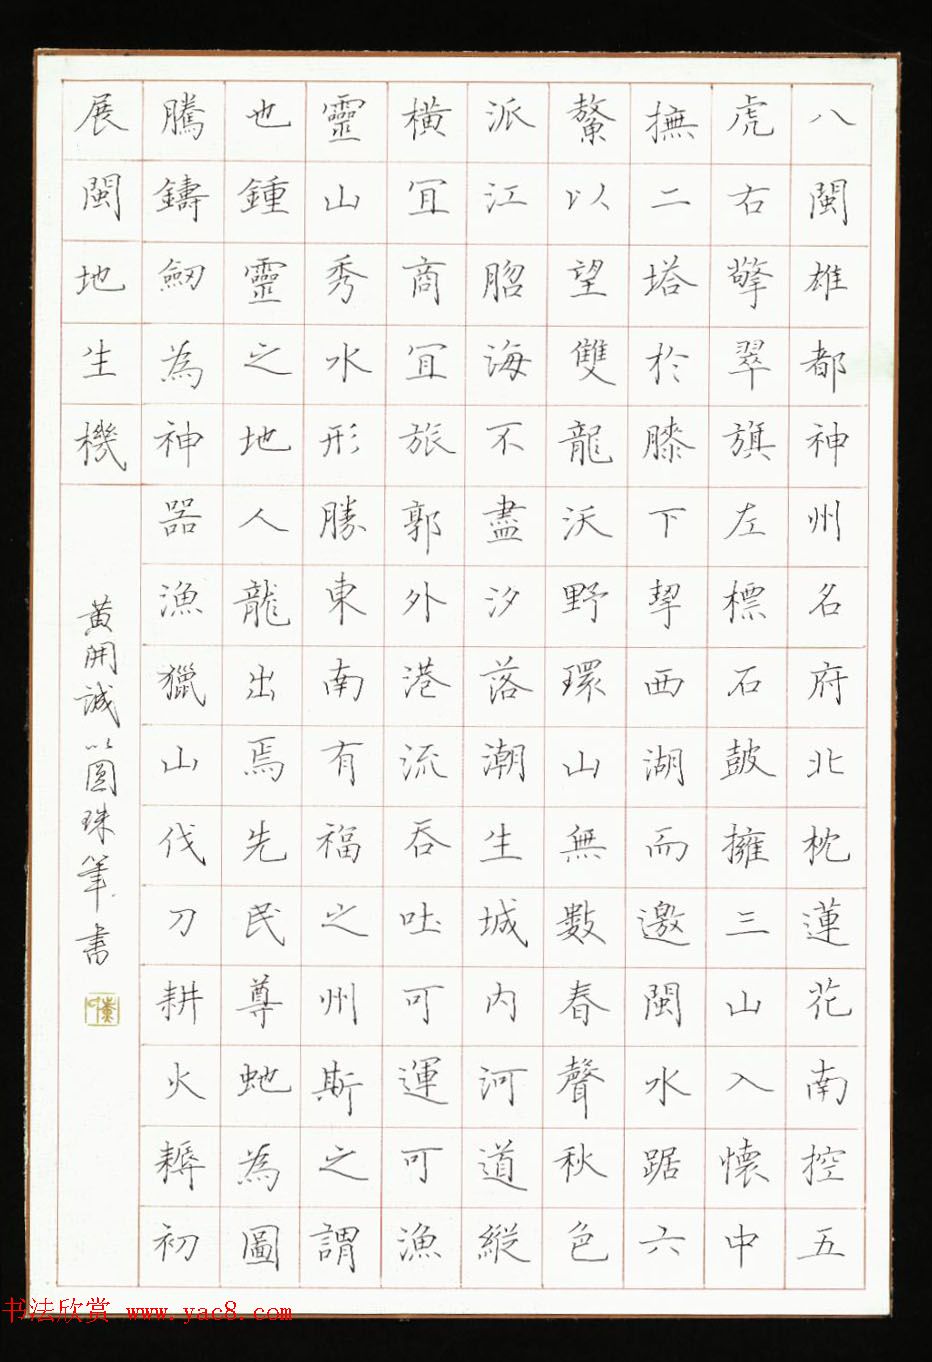 八閩雄都神州名府北枕蓮花南控五
虎右擎翠旗左標石皷擁三山入懷中
撫二塔於膝下挈西湖而邀閩水踞六
鰲以望雙龍沃野環山無數春聲秋色
派江眀海不盡汐落潮生城内河道縱
橫宜商宜旅郭外港流吞吐可運可漁
靈山秀水形勝東南有福之州斯之謂
也鍾靈之地人龍出焉先民尊虵為圖
騰鑄劒為神器漁獵山伐刀耕火耨初
展閩地生機
黃開誠以圓珠筆書
书法欣赏 www.yac8.com